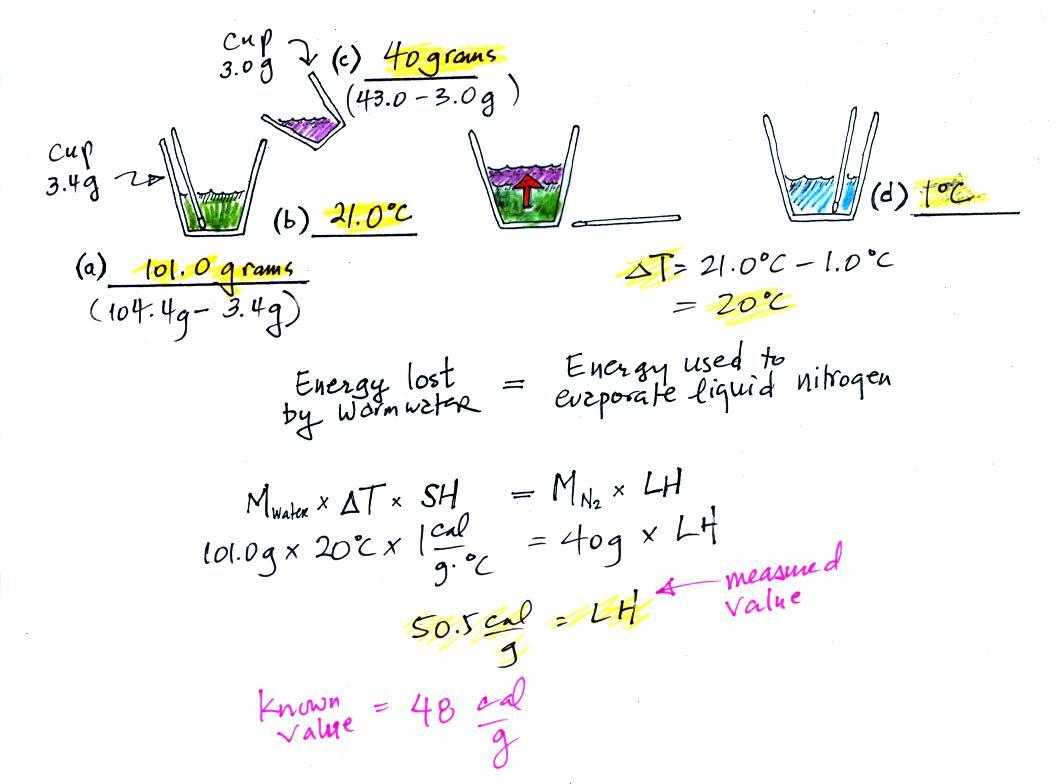 cup
3.0g
(c) 40 grams
(43.0 - 3.0g)
cup
3.4g
(b) 21.0°C
(d) 1°C
(a) 101.0 grams
(104.4g - 3.4g)
ΔT = 21.0°C - 1.0°C
= 20°C
Energy lost
by warm water
=
Energy used to
evaporate liquid nitrogen
Mwater × ΔT × SH = MN2 × LH
101.0g × 20°C × 1 cal/g·°C = 40g × LH
50.5 cal/g = LH
measured
value
known
value
= 48 cal/g